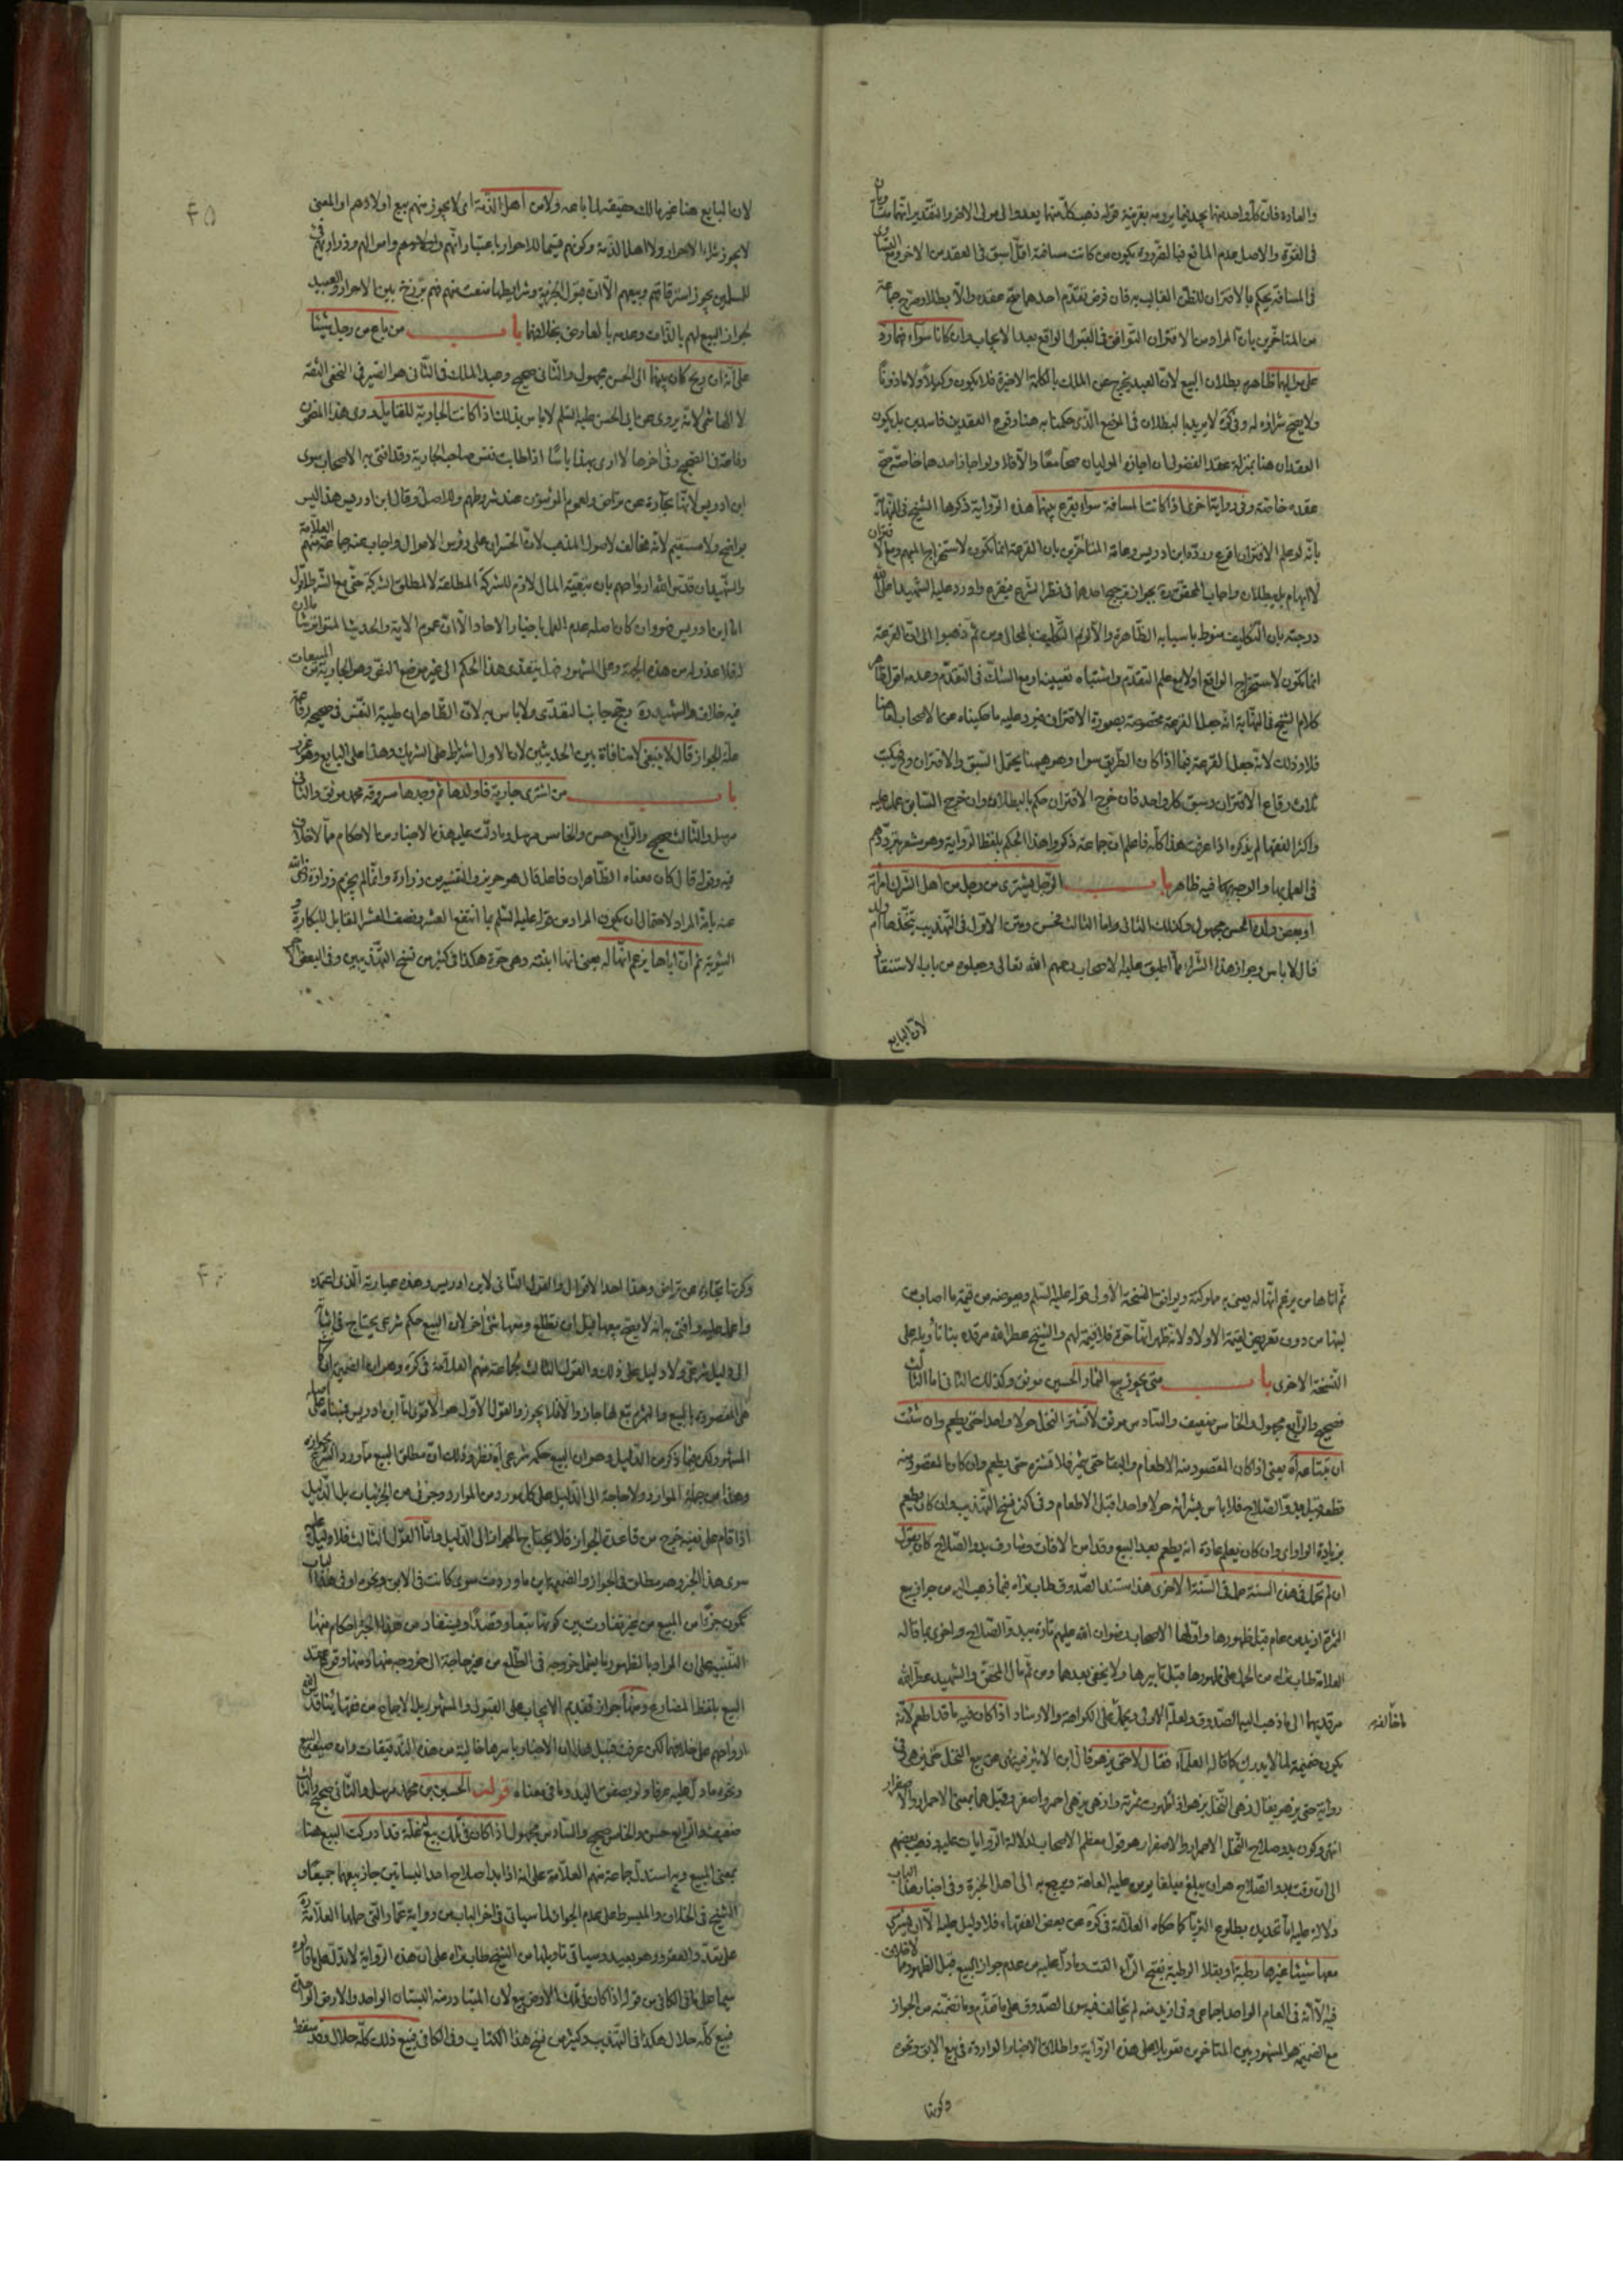 والعادة فان كل واحد منهما
فى القوة والاصل عدم المانع فبالضرورة يكون من كانت مسافته اقل اسبق فى العقد من الاخر ومع
فى المسافة يحكم بالاقتران للظن الغالب به فان فرض تقدم احدهما صح عقده والا بطلا وصرح جماعة
من المتاخرين بان المراد من الاقتران التوافق فى القبول الواقع بعد الايجاب وان كانا سواء
ظاهره بطلان البيع لان العبد يخرج عن الملك بالكلمة الاخيرة فلا يكون وكيلا ولا ماذونا
ولا يصح شراؤه له وفى كره لا يريد بالبطلان فى الموضع الذى حكمنا به هنا وقوع العقدين فاسدين بل يكون
العقدان هنا بمنزلة عقد الفضولى ان اجاز الموليان صحا معا والا فلا ولو اجاز احدهما خاصة صح
عقده خاصة وفى رواية اخرى اذا كانت المسافة سواء يقرع بينهما هذه الرواية ذكرها الشيخ فى النهاية
بانه لو علم الاقتران اقرع وردّه ابن ادريس وعامة المتاخرين بان القرعة انما تكون لاستخراج المبهم ومع الاقتران
لا ابهام بل يبطلان واجاب المحقق ره بجواز ترجيح احدهما فى نظر الشرع فيقرع واورد عليه الشهيد اعلى الله
درجته بان التكليف منوط باسبابه الظاهرة والا لزم التكليف بالمحال ومن ثم ذهبوا الى ان القرعة
انما تكون لاستخراج الواقع اولا مع علم التقدم واشتباه تعيينه او مع الشك فى التقدم وعدمه اقول
كلام الشيخ فى النهاية انه جعل القرعة مخصوصة بصورة الاقتران فيرد عليه ما حكيناه عن الاصحاب
فلا وذلك لانه جعل القرعة فيما اذا كان الطريق سواء وهو ههنا يحتمل السبق والاقتران وح يكتب
ثلاث رقاع الاقتران وسبق كل واحد فان خرج الاقتران حكم بالبطلان وان خرج السابق عمل عليه
واكثر الفقهاء لم يذكره اذا عرفت هذا كله فاعلم ان جماعة ذكروا هذا الحكم بلفظ الرواية وهو مشعر بترددهم
فى العمل بها والوجه فيه ظاهر باب الرجل يشترى من رجل من اهل الشرك امراته
او بعض ولده الخ مجهول وكذلك الثانى واما الثالث ومتن الاول فى التهذيب يتخذها ام ولد
قال لا باس وجواز هذا الشراء مما اطبق عليه الاصحاب رحمهم الله تعالى وجعلوه من باب الاستنقاذ
لان البايع
۴۵
لان البايع هنا غير مالك حقيقة لما باعه ولا من اهل الذمة اى لا يجوز منهم بيع اولادهم او المعنى
لا يجوز شراء الاحرار ولا اهل الذمة وكونهم قسيما للاحرار باعتبار انهم
للمسلمين يجوز استرقاقهم وبيعهم الا ان قبول الجزية وشرايطها منعت منهم فهم برزخ بين الاحرار والعبيد
لجواز البيع لهم بالذات وعدمه بالعارض بخلافهما باب من باع من رجل شيئا
على انه ان ربح كان بينهما الى الحسن مجهول والثانى صحيح وعبد الملك فى الثانى هو الصيرفى النخعى الثقة
لا الهاشمى لانه يروى عن ابى الحسن عليه السلم لا باس بذلك اذا كانت الجارية للقايل
رفاعة فى الصحيح وفى اخرها لا ارى بهذا باسا اذا طابت نفس صاحب الجارية وقد افتى به الاصحاب سوى
ابن ادريس لانها تجارة عن تراض ولعموم المؤمنون عند شروطهم وللاصل وقال ابن ادريس هذا ليس
بواضح ولا مستقيم لانه مخالف لاصول المذهب لان الخسران على رؤس الاموال واجاب عنه جماعة منهم العلامة
والشهيدان قدس الله ارواحهم بان تبعية المال لازم للشركة المطلقة لا لمطلق الشركة حتى مع الشرط
اما ابن ادريس فهو وان كان اصله عدم العمل باخبار الاحاد الا ان عموم الاية والحديث
فلا عذر له من هذه الجهة وعلى المشهور فهل يتعدى هذا الحكم الى غير موضع النص وهو الجارية من المبيعات
فيه خلاف والشهيد ره رجح جانب التعدى ولا باس به لان الظاهر ان طيبة النفس فى صحيح رفاعة
علة الجواز قال لا ينبغى لا منافاة بين الحديثين لان الاول اشتراط على الشريك وهذا على البايع
باب من اشترى جارية فاولدها ثم وجدها مسروقة محمد موثق والثانى
مرسل والثالث صحيح والرابع حسن والخامس مرسل وما دلت عليه هذه الاخبار من الاحكام مما لا خلاف
فيه وقوله قال كان معناه الظاهر ان فاعل قال هو حريز والتفسير من زرارة وانما لم يجزم زرارة
عنه بانه المراد لاحتمال ان يكون المراد من قوله عليه السلم بما انتفع العشر ونصف العشر المقابل للبكارة و
الثيوبة ثم ان اباها يزعم انها له يعنى انها ابنته وهى حرة هكذا فى كثير من نسخ التهذيبين وفى البعض
ثم اتاها من يزعم انها له يعنى به مملوكته ويوافق النسخة الاولى قوله عليه السلم ويعوضه من قيمة ما اصاب من
لبنها من دون تعرض لقيمة الاولاد لانه ظهر انها حرة فلا قيمة لهم والشيخ عطر الله مرقده بنا تأويله على
النسخة الاخرى باب متى يجوز بيع الثمار الحسين موثق وكذلك الثانى اما الثالث
فصحيح والرابع مجهول والخامس ضعيف والسادس موثق لا تشتر النخل حولا واحدا حتى يطعم وان شئت
ان تبتاعه آه يعنى اذا كان المقصود منه الاطعام والبقا حتى يثمر فلا تشتره حتى يطعم وان كان المقصود منه
قطعه قبل بدو الصلاح فلا باس بشرائه حولا واحدا قبل الاطعام وفى اكثر نسخ التهذيب وان كان يطعم
بزيادة الواو اى وان كان يعلم عادة انه يطعم بعد البيع وقد امن الافات وشارف بدو الصلاح كان يقول
ان لم تحمل فى هذه السنة حمل فى السنة الاخرى هذا مستند الصدوق طاب ثراه فيما ذهب اليه من جواز بيع
الثمرة ازيد من عام قبل ظهورها واولها الاصحاب رضوان الله عليهم تارة ببدو الصلاح واخرى بما قاله
العلامة طاب ثراه من الحمل على ظهورها قبل تابيرها ولا يخفى بعدها ومن ثم مال المحقق والشهيد عطر الله
مرقديهما الى ما ذهب اليه الصدوق ولعله الاولى ويحمل على الكراهة والارشاد اذا كان فيه ما قد اطعم لانه
يكون ضميمة لما لا يدرك كما قاله العلماء فقال لا حتى يزهو قال ابن الاثير فيه نهى عن بيع النخل حتى يزهو وفى
رواية حتى يزهى يقال زهى النخل يزهو اذا ظهرت ثمرته وازهى يزهى احمر واصفر وقيل هما بمعنى الاحمرار والاصفرار
انتهى وكون بدو صلاح النخل الاحمرار والاصفرار هو قول معظم الاصحاب لدلالة الروايات عليه وذهب بعضهم
الى ان وقت بدو الصلاح هو ان يبلغ مبلغا يؤمن عليه العاهة ويرجع به الى اهل الخبرة وفى اخبار هذا الباب
دلالة عليه اما تحديده بطلوع الثريا كما حكاه العلامة فى كره عن بعض الفقهاء فلا دليل عليه الا ان يشترى
معها شيئا غيرها رطبة او بقلا الرطبة بفتح الراء القت وما دل عليه من عدم جواز البيع قبل الظهور مما لا خلاف
فيه الا انه فى العام الواحد اجماعى وفى ازيد منه لم يخالف فيه سوى الصدوق على ما تقدم وما تضمنه من الجواز
مع الضميمة هو المشهور بين المتاخرين تعويلا على هذه الرواية واطلاق الاخبار الواردة فى بيع الابق ونحوه
وكونها
وكونها تجارة عن تراض وهذا احد الاقوال والقول الثانى لابن ادريس وهذه عبارته الذى اعتمده
واعمل عليه وافتى به انه لا يصح بيعها قبل ان تطلع ومعها شئ اخر لان البيع حكم شرعى يحتاج فى اثباته
الى دليل شرعى ولا دليل على ذلك والقول الثالث لجماعة منهم العلامة فى كره وهو ان الضميمة ان كانت
هى المقصودة بالبيع والثمرة تبع لها جاز والا فلا يجوز والقول الاول هو الاقوى اما ابن ادريس فبناه على اصله
المشهور لكن فيما ذكر من الدليل وهو ان البيع حكم شرعى آه نظر وذلك ان مطلق البيع مما ورد الشرع بجوازه
وهذا من جملة الموارد ولا حاجة الى الدليل على كل مورد من الموارد وجزئى من الجزئيات بل الدليل
اذا قام على نفيه خرج من قاعدة الجواز فلا يحتاج الجواز الى الدليل واما القول الثالث فلا دليل عليه
سوى هذا الخبر وهو مطلق فى الجواز والضميمة
تكون جزءا من المبيع من غير تفاوت بين كونها تبعا وقصدا ويستفاد من هذا الخبر احكام منها
التنبيه على ان المراد بالظهور ما يشمل خروجه فى الطلع من غير حاجة الى خروجه منه ومنها وقوع عقد
البيع بلفظ المضارع ومنها جواز تقديم الايجاب على القبول والمشهور بل الاجماع من فقهائنا
ارواحهم على خلافهما لكن عرفت قبل هذا ان الاخبار باسرها خالية من هذه التدقيقات وان صيغ البيع
ونحوه ما دل عليه عرفا ولو بصفق اليد وما فى معناه قوله الحسين بن محمد مرسل والثانى صحيح والثالث
ضعيف والرابع حسن والخامس صحيح والسادس مجهول اذا كان فى تلك بيع له غلة قد ادركت البيع هنا
بمعنى المبيع وبه استدل جماعة منهم العلامة على انه اذا بدا صلاح احد البساتين جاز بيعهما جميعا و
الشيخ فى الخلاف والمبسوط على عدم الجواز لما سياتى فى اخر الباب من رواية عمار والتى حملها العلامة ره
على تعدد العقود وهو بعيد وسياتى تاويلها من الشيخ طاب ثراه على ان هذه الرواية لا تدل على ما قالوه
سيما على ما فى الكافى من قوله اذا كان فى تلك الارض بيع لان المتبادر منه البستان الواحد والارض الواحدة
فبيع كله حلال هكذا فى التهذيب وكثير من نسخ هذا الكتاب وفى الكافى فبيع ذلك كله حلال وقد سقط